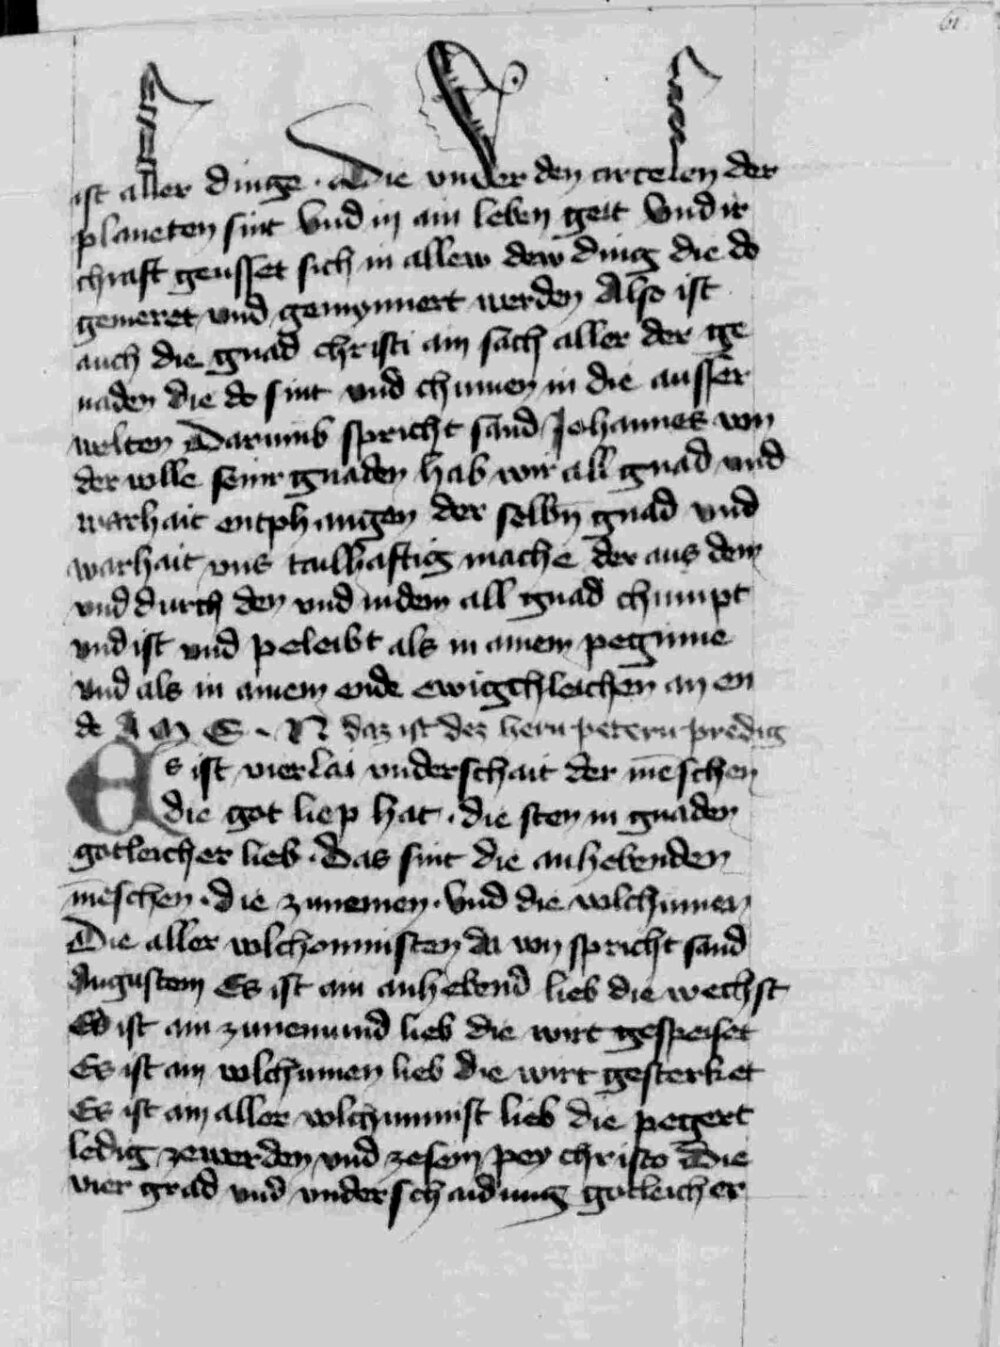 61
ist aller dinge · Die vnder den circelen der
planeten sint Vnd in ain leben geit Vnd ir
chraft geusset sich in allew dew ding die do
gemeret vnd gemynnert werden Also ist
auch die gnad christi ain sach aller der ge
naden die do sint vnd chumen in die ausser
welten Darumb spricht sand Johannes von
der volle seinr gnaden hab wir all gnad vnd
warhait entphangen der selbn̄ gnad vnd
warhait vns tailhaftig mache der aus dem
vnd durch den vnd in dem all gnad chumpt
vnd ist vnd peleibt als in ainem peginne
vnd als in ainem ende ewigchleichen an en
de A M E · N daz ist dez hern petern predig
Es ist vierlai vnderschait der mēschen
die got liep hat · die sten in gnaden
gotleicher lieb · Das sint die anhebenden
mēschen · die zunemen · Vnd die volchumen
Die aller volchomnisten da von spricht sand
Augustein Es ist ain anhebend lieb die wechst
Es ist ain zunemund lieb die wirt gespeiset
Es ist ain volchumen lieb die wirt gesterket
Es ist ain aller volchumnist lieb die pegert
ledig zewerden vnd zesein pey christo Die
vier grad vnd vnderschaidung gotleicher